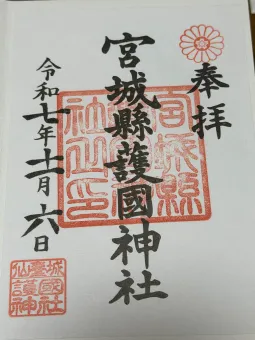 奉拝
宮城縣護國神社
令和七年十一月六日
宮城縣
社之印
仙臺城
護國
神社